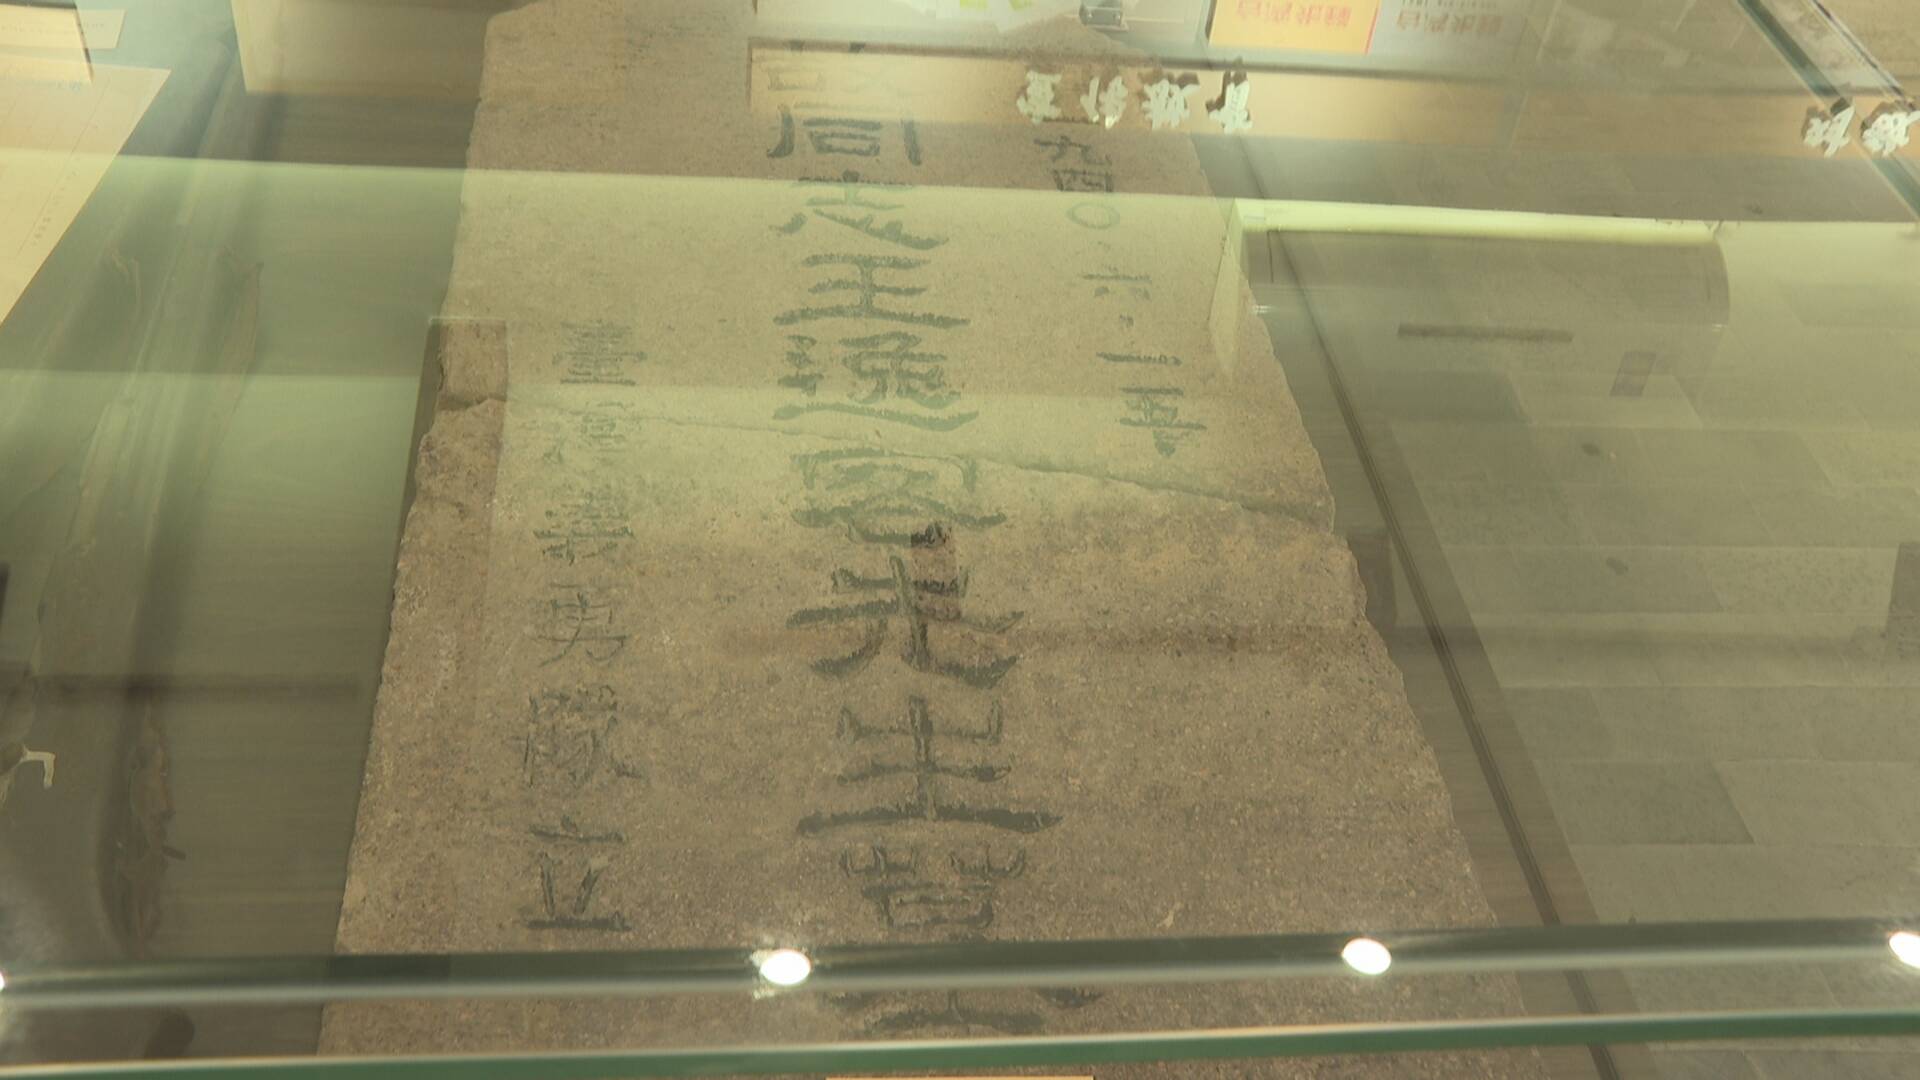 一九四〇.六.一五
故同志王逸客先生墓
臺灣義勇隊立